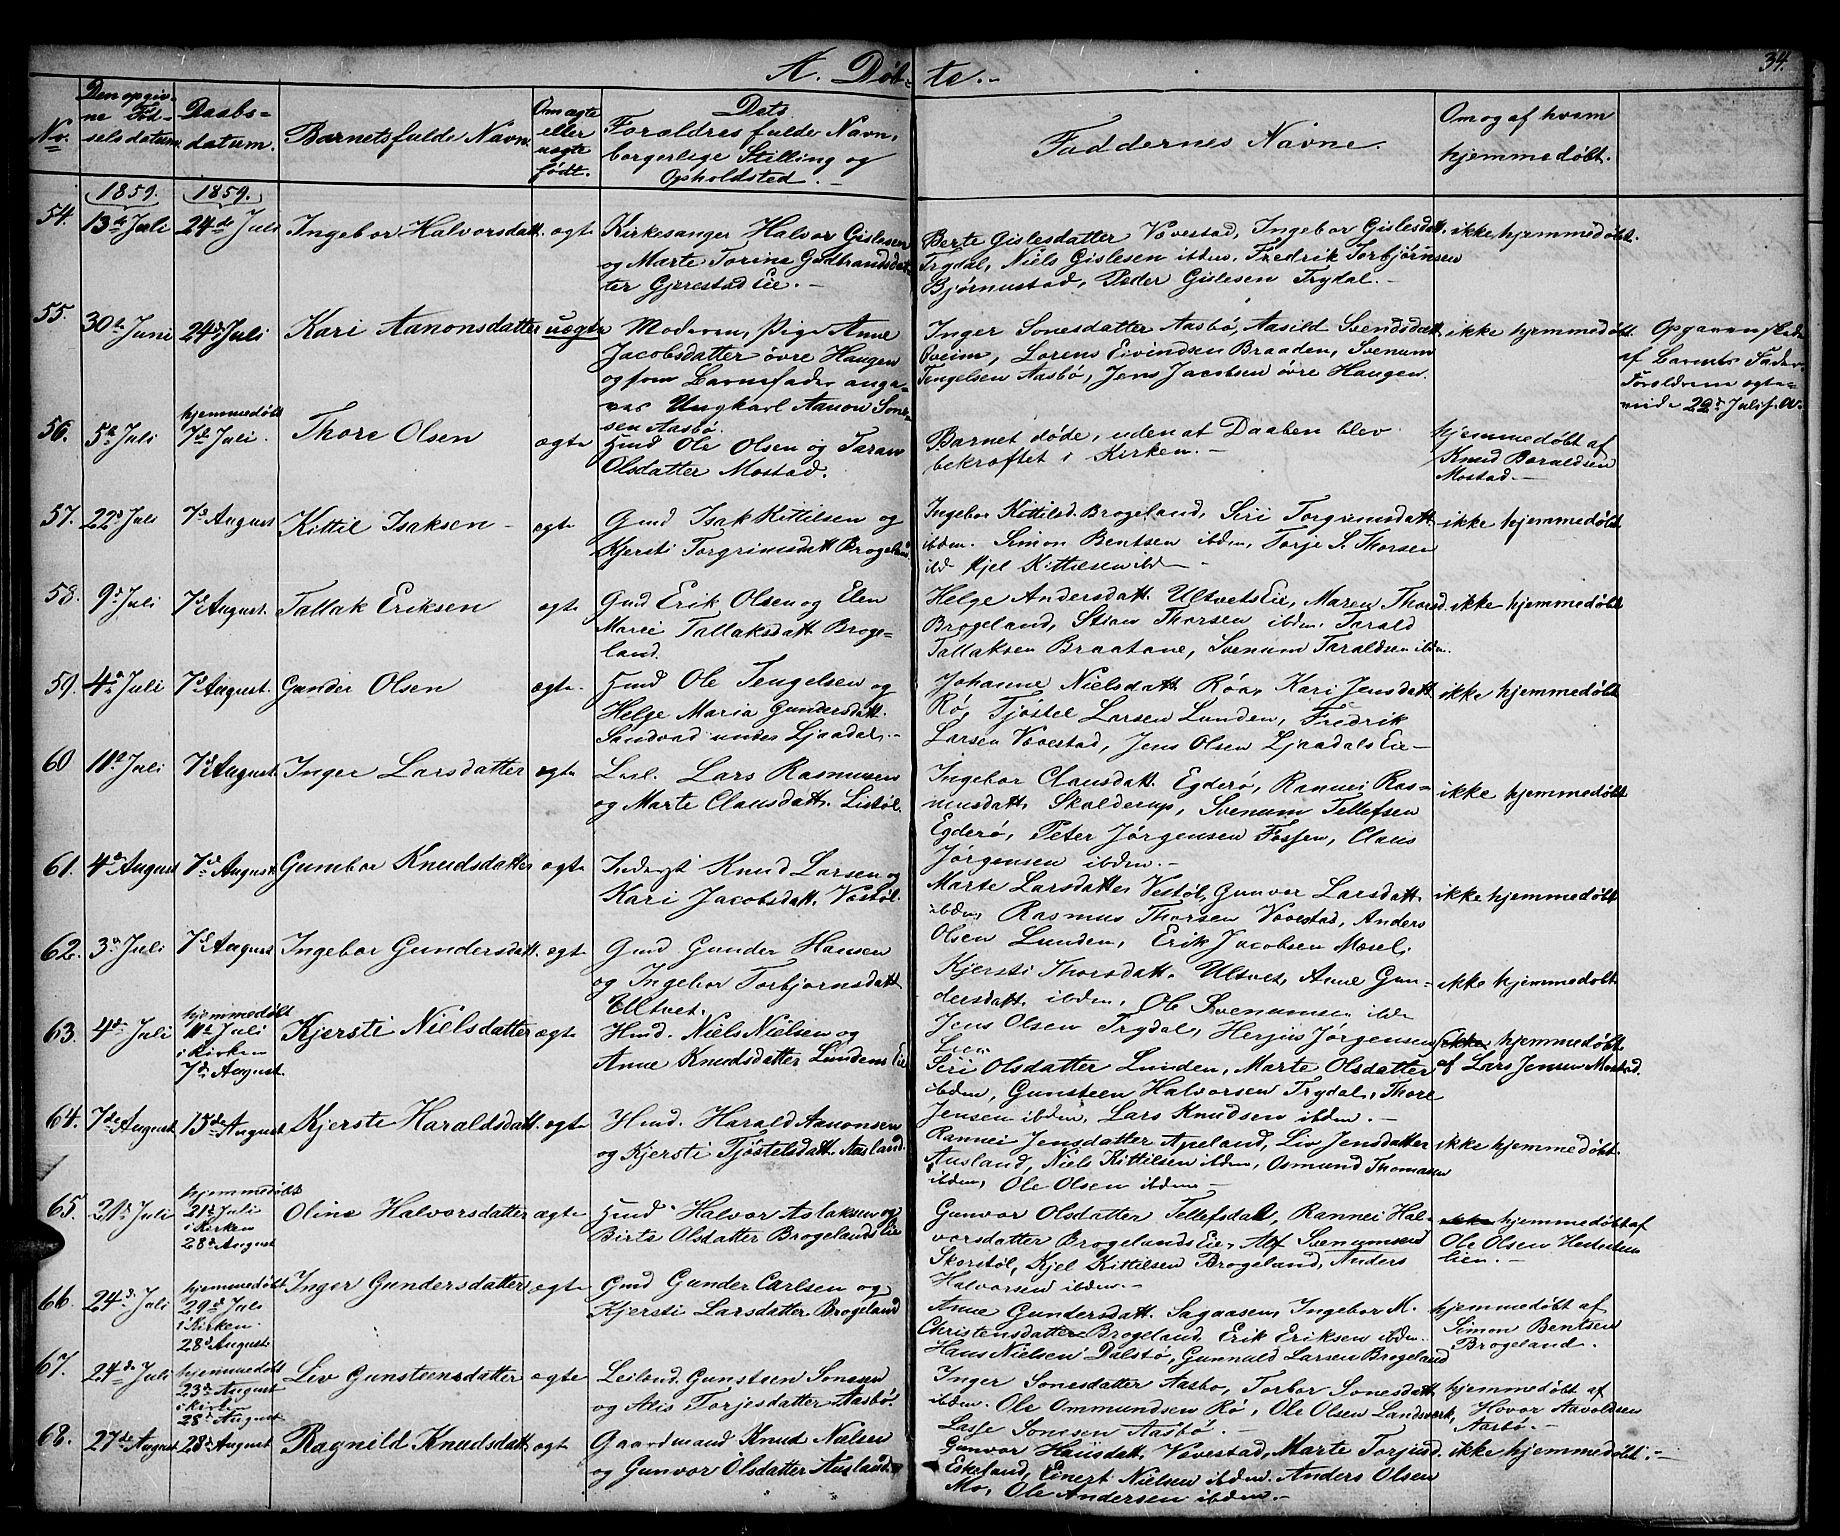 A. Døb- te.-
34.
No.
Den opgiv-
ne Fød-
selsdatum.
Daabs-
datum.
Barnets fulde Navn.
Om ægte
eller
uægte
født.
Dets
Forældres fulde Navn,
borgerlige Stilling og
Opholdsted.-
Faddernes Navne.
Om og af hvem
hjemmedøbt.
1859. 1859.
54. 13de Juli 24de Juli Ingebor Halvorsdatt. ægte
Kirkesanger Halvor Gislesen
og Marte Torine Guldbrandsdat-
ter Gjerestad Eie.-
Berte Gislesdatter Vovestad, Ingebor Gislesdatt.
Trydal, Niels Gislesen ibden, Fredrik Torbjørnsen
Bjørnustad, Peder Gislesen Trydal.-
ikke hjemmedøbt.
55. 30te Juni 24de Juli Kari Aanonsdatter uægte
Moderen, Pige Anne
Jacobsdatter øvre Haugen
og som Barnefader anga-
ves Ungkarl Aanon Sone-
sen Aasbø.
Inger Sonesdatter Aasbø, Aasild Svendsdatt.
Sveim, Lorens Eivindsen Braaden, Svenum
Tengelsen Aasbø, Jens Jacobsen øvre Haugen.
ikke hjemmedøbt.
Opgaven skede
af Barnets Fader.
Forældrene ægte-
viede 22de Juli s. A.
56. 5te Juli
hjemmedøbt
7de Juli.
Thore Olsen ægte
Hmd Ole Olsen og Taran
Olsdatter Mostad.
Barnet døde, uden at Daaben blev
bekræftet i Kirken.-
hjemmedøbt af
Knud Baraldsen
Mostad.-
57. 22de Juli 7de August Kittil Isaksen ægte
Gmd Isak Kittilsen og
Kjersti Torgrimsdatt Brogeland
Ingebor Kittilsd. Brogeland, Siri Torgrimsdatt.
ibden. Simon Bentsen ibden, Torje S. Thorsen
ibd Kjel Kittilsen ibd-
ikke hjemmedøbt
58. 9de Juli 7de August. Tallak Eriksen ægte
Gmd Erik Olsen og Elen
Marie Tallaksdatt. Broge-
land.
Helge Andersdatt. Ultvets Eie, Maren Thorsd.
Brogeland, Stian Thorsen ibden, Tarald
Tallaksen Braatane, Svenum Taraldsen ibden.
ikke hjemmedøbt
59. 4de Juli 7de August. Gunder Olsen ægte.
Hmd Ole Tengelsen og
Helge Maria Gundersdatt.
Sandvad under Ljaadal.-
Johanne Nielsdatt. Røa, Kari Jensdatt
Rø, Tjøstel Larsen Lunden, Fredrik
Larsen Vovestad, Jens Olsen Ljaadals Eie-
ikke hjemmedøbt
60 11te Juli 7de August. Inger Larsdatter ægte
Leil. Lars Rasmusen
og Marte Clausdatt. Listøl.
Ingebor Clausdatt. Egderø, Rannei Ras-
musdatt. Skalderup, Svenum Tellefsen
Egderø, Peter Jørgensen Fosfen, Claus
Jørgensen ibden.-
ikke hjemmedøbt
61. 4de August 7de August Gunebor Knudsdatter ægte
Inderst Knud Larsen og
Kari Jacobsdatt. Vestøl.
Marte Larsdatter Vestøl, Gunvor Larsdatt.
ibden, Rasmus Thorsen Vovestad, Anders
Olsen Lunden, Erik Jacobsen Mosel.
ikke hjemmedøbt
62. 3de Juli 7de August Ingebor Gundersdatt. ægte
Gmd Gunder Hansen
og Ingebor Torbjørnsdatt
Ultvet.
Kjersti Thorsdatt. Ultvet, Anne Gun-
dersdatt. ibden, Ole Svenumsen ibden
Jens Olsen Trydal, Herjus Jørgensen
Lien
ikke hjemmedøbt
63. 4de Juli
hjemmedøbt
11te Juli
i Kirken
7de August.
Kjersti Nielsdatter ægte
Hmd. Niels Nielsen og
Anne Knudsdatter Lundens Eie
Siri Olsdatter Lunden, Marte Olsdatter
ibden, Gunsteen Halvorsen Trydal, Thore
Jensen ibden, Lars Knudsen ibden.-
ikke hjemmedøbt
af Lars Jensen Mostad.
64. 7de August 15de August Kjerste Haraldsdatt. ægte
Hmd. Harald Aanonsen
og Kjersti Tjøstelsdatt. Aasland.
Rannei Jensdatter Apeland, Liv Jensdatter
Aasland, Niels Kittilsen ibden, Osmund Thomasen
ibden, Ole Olsen ibden-
ikke hjemmedøbt.
65. 21de Juli
hjemmedøbt
21de Juli
i Kirken
28de August
Oline Halvorsdatter ægte
Hmd Halvor Aslaksen og
Birte Olsdatter Brogelands Eie
Gunvor Olsdatter Tellefsdal, Rannei Hal-
vorsdatter Brogelands Eie, Alf Svenumsen
Skorstøl, Kjel Kittilsen Brogeland, Anders
Halvorsen ibden.-
ikke hjemmedøbt af
Ole Olsen
Lien.
66. 24de Juli
hjemmedøbt
29de Juli
i Kirken.
28de August
Inger Gundersdatter ægte
Gmd Gunder Carlsen og
Kjersti Larsdatter Brogeland
Anne Gundersdatt. Sagaasen, Ingebor M.
Christensdatter Brogeland, Erik Eriksen ibden.
Hans Nielsen Dalstø, Gunnuld Larsen Brogeland
hjemmedøbt af
Simon Bentsen
Brogeland.
67. 24de Juli
hjemmedøbt
23de August
i Kirken
28de August
Liv Gunsteensdatter ægte
Leilænd. Gunsteen Sonesen
og Alis Torjesdatter Aasbø.
Inger Sonesdatter Aasbø, Torbor Sonesdatt.
ibden. Ole Ommundsen Rø, Ole Olsen Landsverk,
Lasse Sonesen Aasbø.-
hjemmedøbt af
Hovor Aavoldsen
Aasbø.-
68. 27de August 28de August Ragnild Knudsdatt. ægte
Gaardmand Knud Nielsen
og Gunvor Olsdatter Aasland
Gunvor Hansdatt. Vovestad, Marte Torjusd.
Eskeland, Einert Nielsen ibden. Anders Olsen
Mo, Ole Andersen ibden.-
ikke hjemmedøbt.-